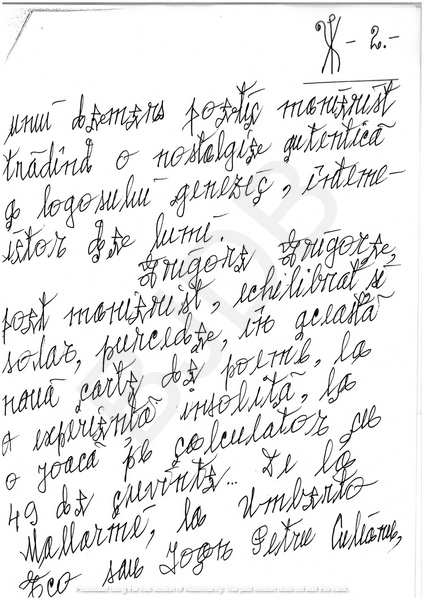 - 2.-
unui demers poetic manierist
trădînd o nostalgie autentică
a logosului genezic, înteme-
ietor de lumi.
Grigore Grigore,
poet manierist, echilibrat și
solar, purcede, în această
nouă carte de poeme, la
o experiență insolită, la
o joacă pe calculator cu
49 de cuvinte... De la
Mallarmé, la Umberto
Eco sau Ioan Petru Culianu,
BCDB